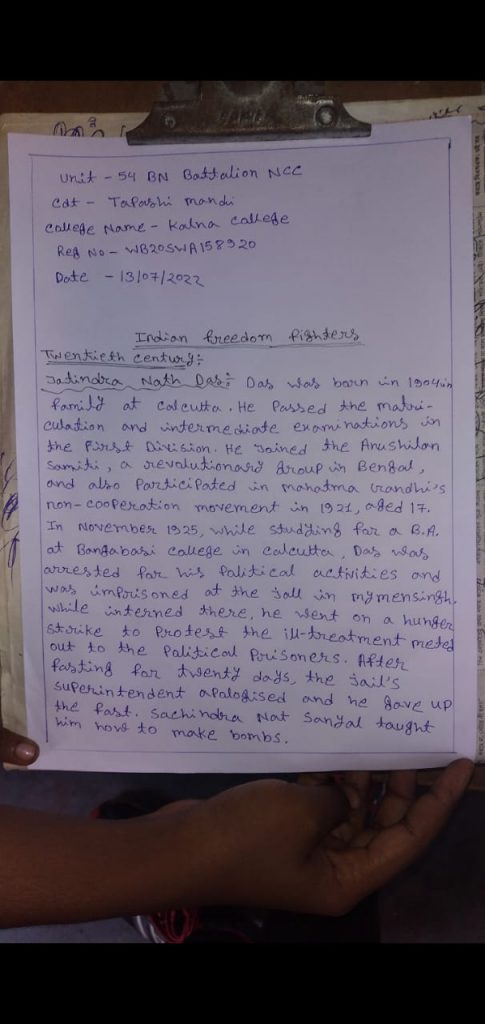 Unit - 54 BN Battalion NCC
Cdt - Tapashi mandi
College Name - Kalna College
Reg No - WB20SWA158920
Date - 13/07/2022
Indian freedom fighters
Twentieth century:-
Jatindra Nath Das:- Das was born in 1904 in
family at calcutta. He Passed the matri-
culation and intermediate examinations in
the First Division. He Joined the Anushilan
Samiti, a revolutionary group in Bengal,
and also Participated in mahatma Gandhi's
non-cooperation movement in 1921, aged 17.
In November 1925, while studying for a B.A.
at Bangabasi College in Calcutta, Das was
arrested for his Political activities and
was imprisoned at the Jall in mymensingh.
While interned there, he went on a hunger
strike to Protest the ill-treatment meted
out to the Political Prisoners. After
fasting for twenty days, the Jail's
superintendent apologised and he gave up
the fast. Sachindra Nat Sanyal taught
him how to make bombs.